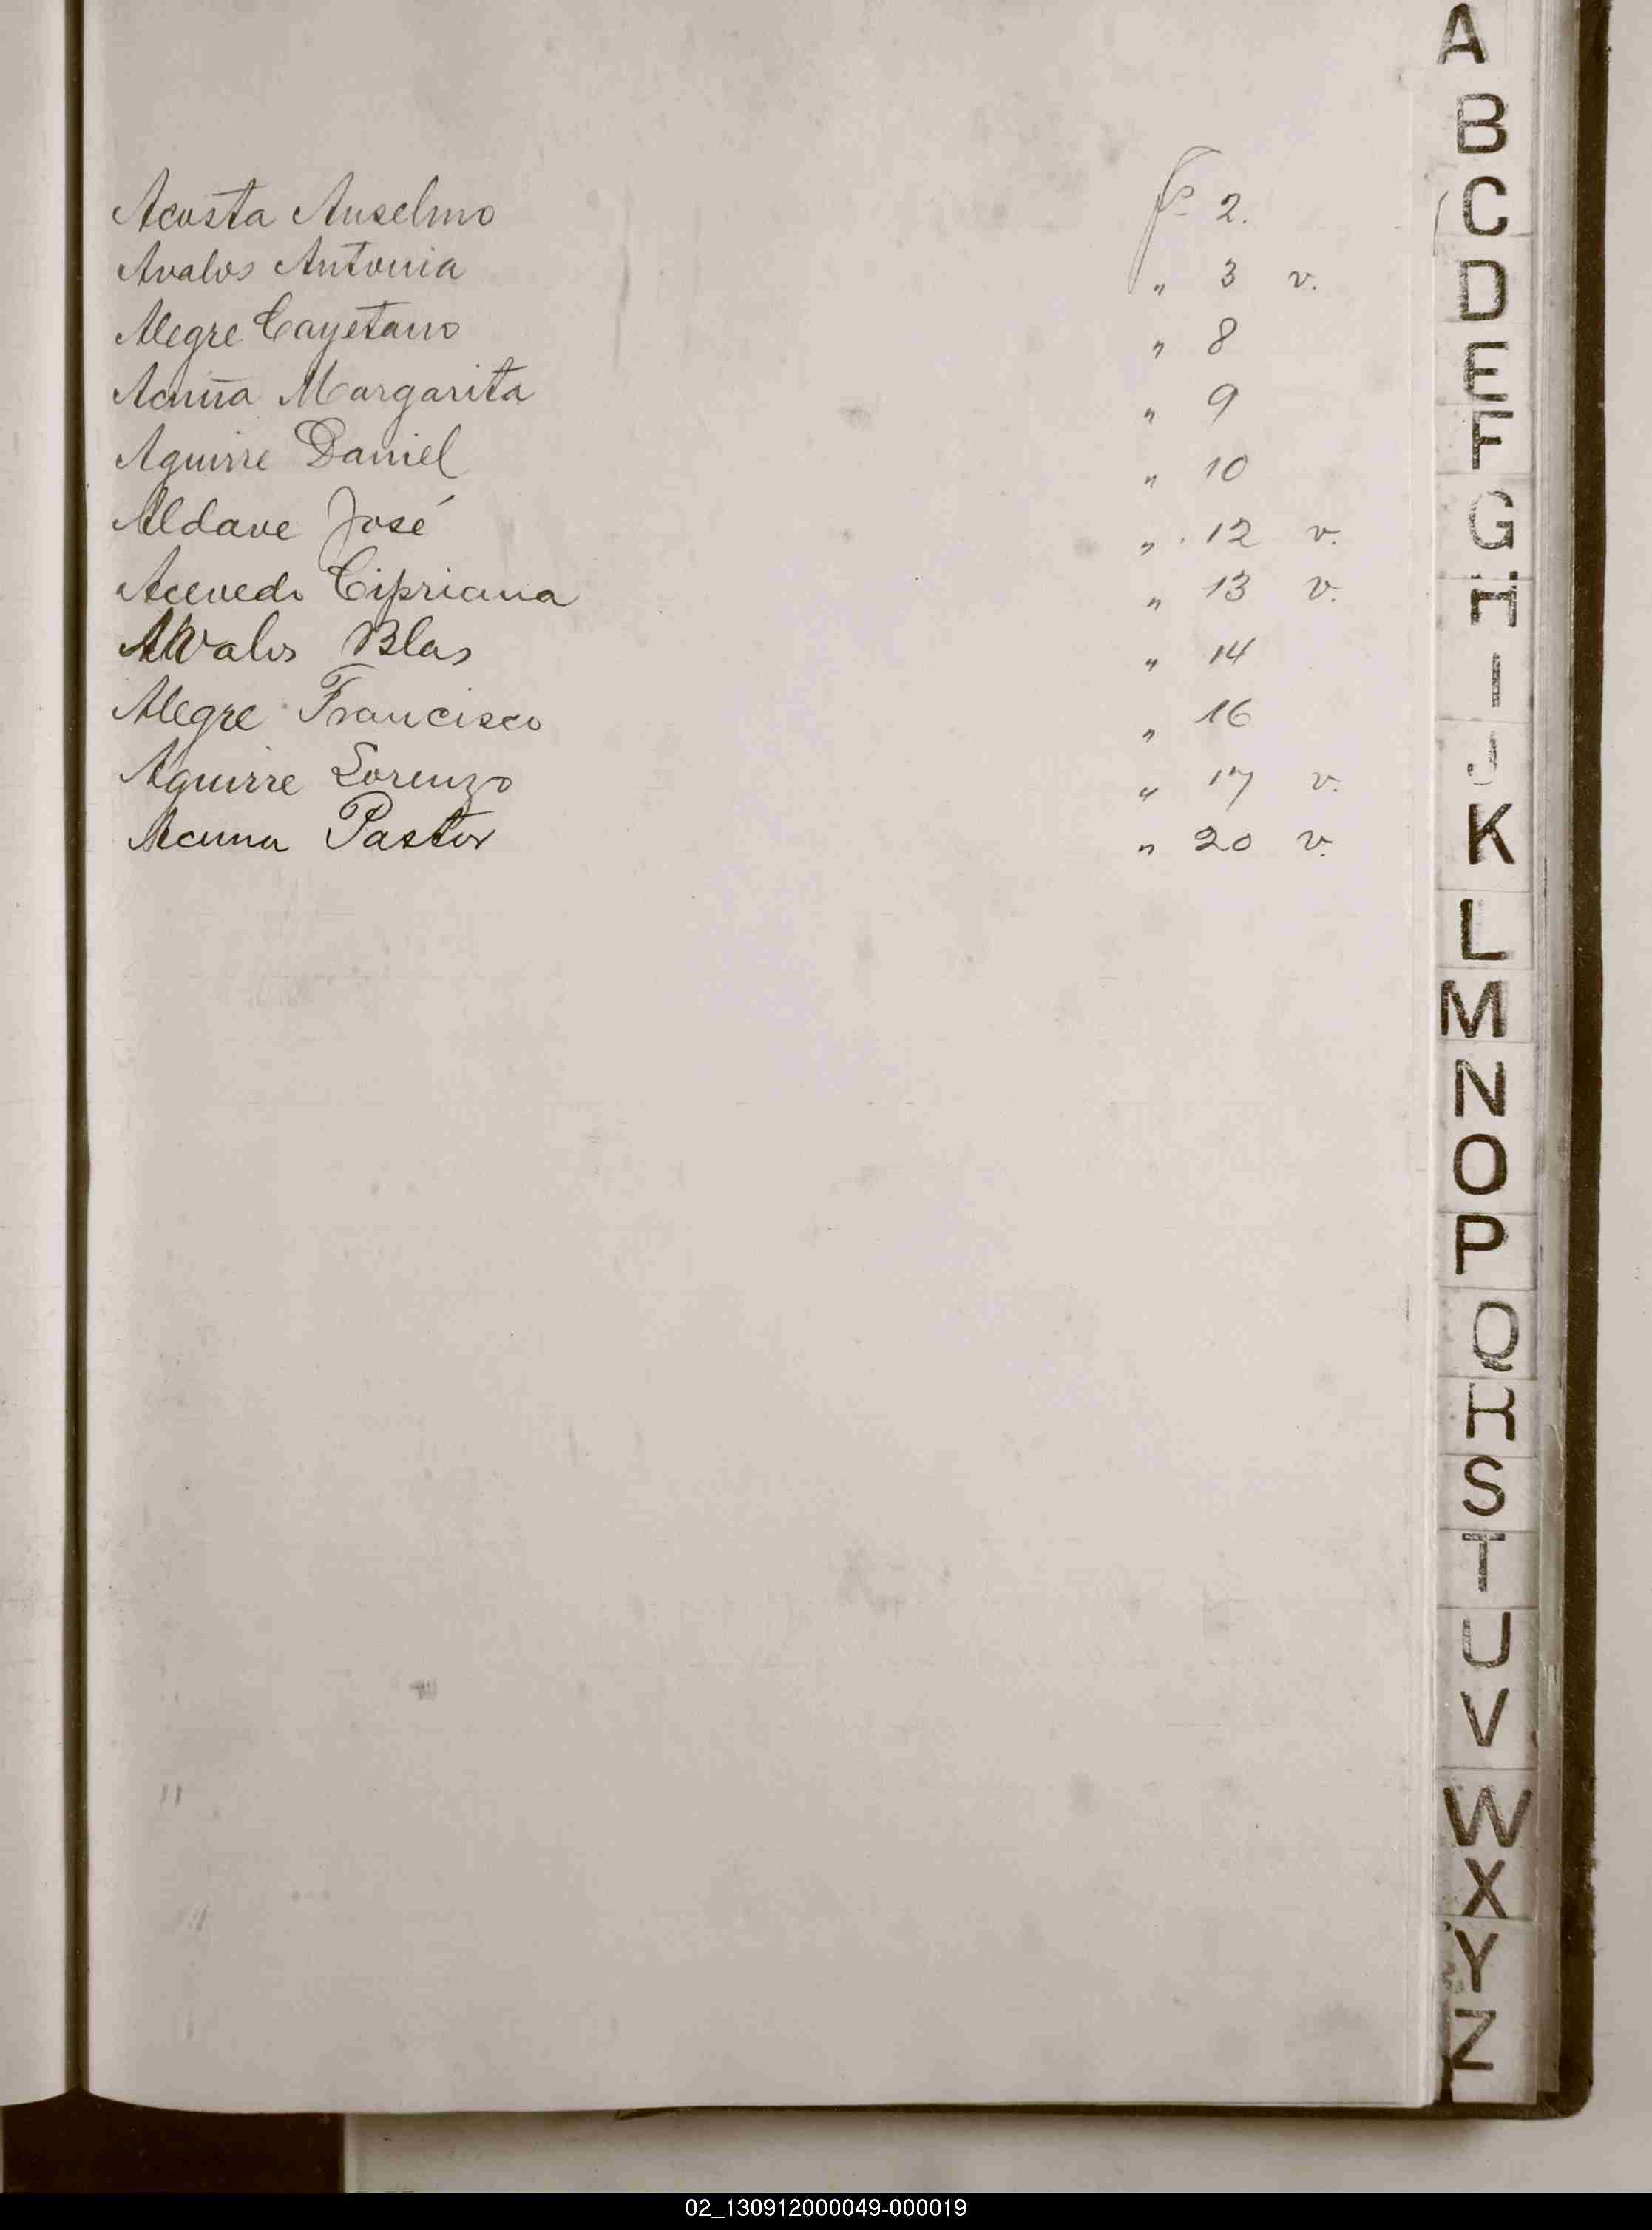 Acosta Anselmo fo 2.
Avalos Antonia " 3 v.
Alegre Cayetano " 8
Acuña Margarita " 9
Aguirre Daniel " 10
Aldave José " 12 v.
Acevedo Cipriana " 13 v.
Avalos Blas " 14
Alegre Francisco " 16
Aguirre Lorenzo " 17 v.
Acuna Pastor " 20 v.
A
B
C
D
E
F
G
H
I
J
K
L
M
N
O
P
Q
R
S
T
U
V
W
X
Y
Z
02_130912000049-000019